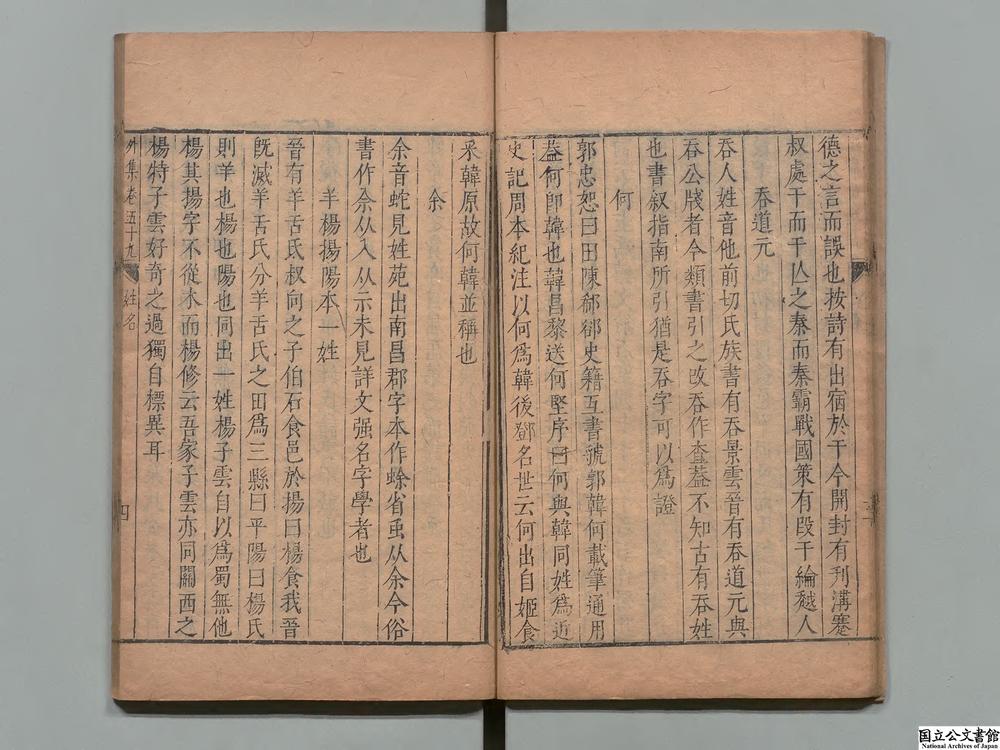 德之言而誤也按詩有出宿於干今開封有刋溝蹇
叔處干而干亾之秦而秦霸戰國策有段干綸越人
吞道元
吞人姓音他前切氏族書有吞景雲晉有吞道元與
吞公牋者今類書引之改吞作㭐葢不知古有吞姓
也書叙指南所引猶是吞字可以爲證
何
郭忠恕曰田陳郗郤史籍互書虢郭韓何載筆通用
葢何卽韓也韓昌黎送何堅序曰何與韓同姓爲近
史記周本紀注以何爲韓後鄧名世云何出自姬食
采韓原故何韓並稱也
佘
佘音蛇見姓苑出南昌郡字本作蜍省虫从余今俗
書作佘从入从示未見詳文强名字學者也
羊楊揚陽本一姓
晉有羊舌氏叔向之子伯石食邑於揚曰楊食我晉
旣滅羊舌氏分羊舌氏之田爲三縣曰平陽曰楊氏
則羊也楊也陽也同出一姓楊子雲自以爲蜀無他
楊其揚字不從木而楊修云吾家子雲亦同關西之
楊特子雲好奇之過獨自標異耳
外集卷五十九 姓名 四
国立公文書館
National Archives of Japan